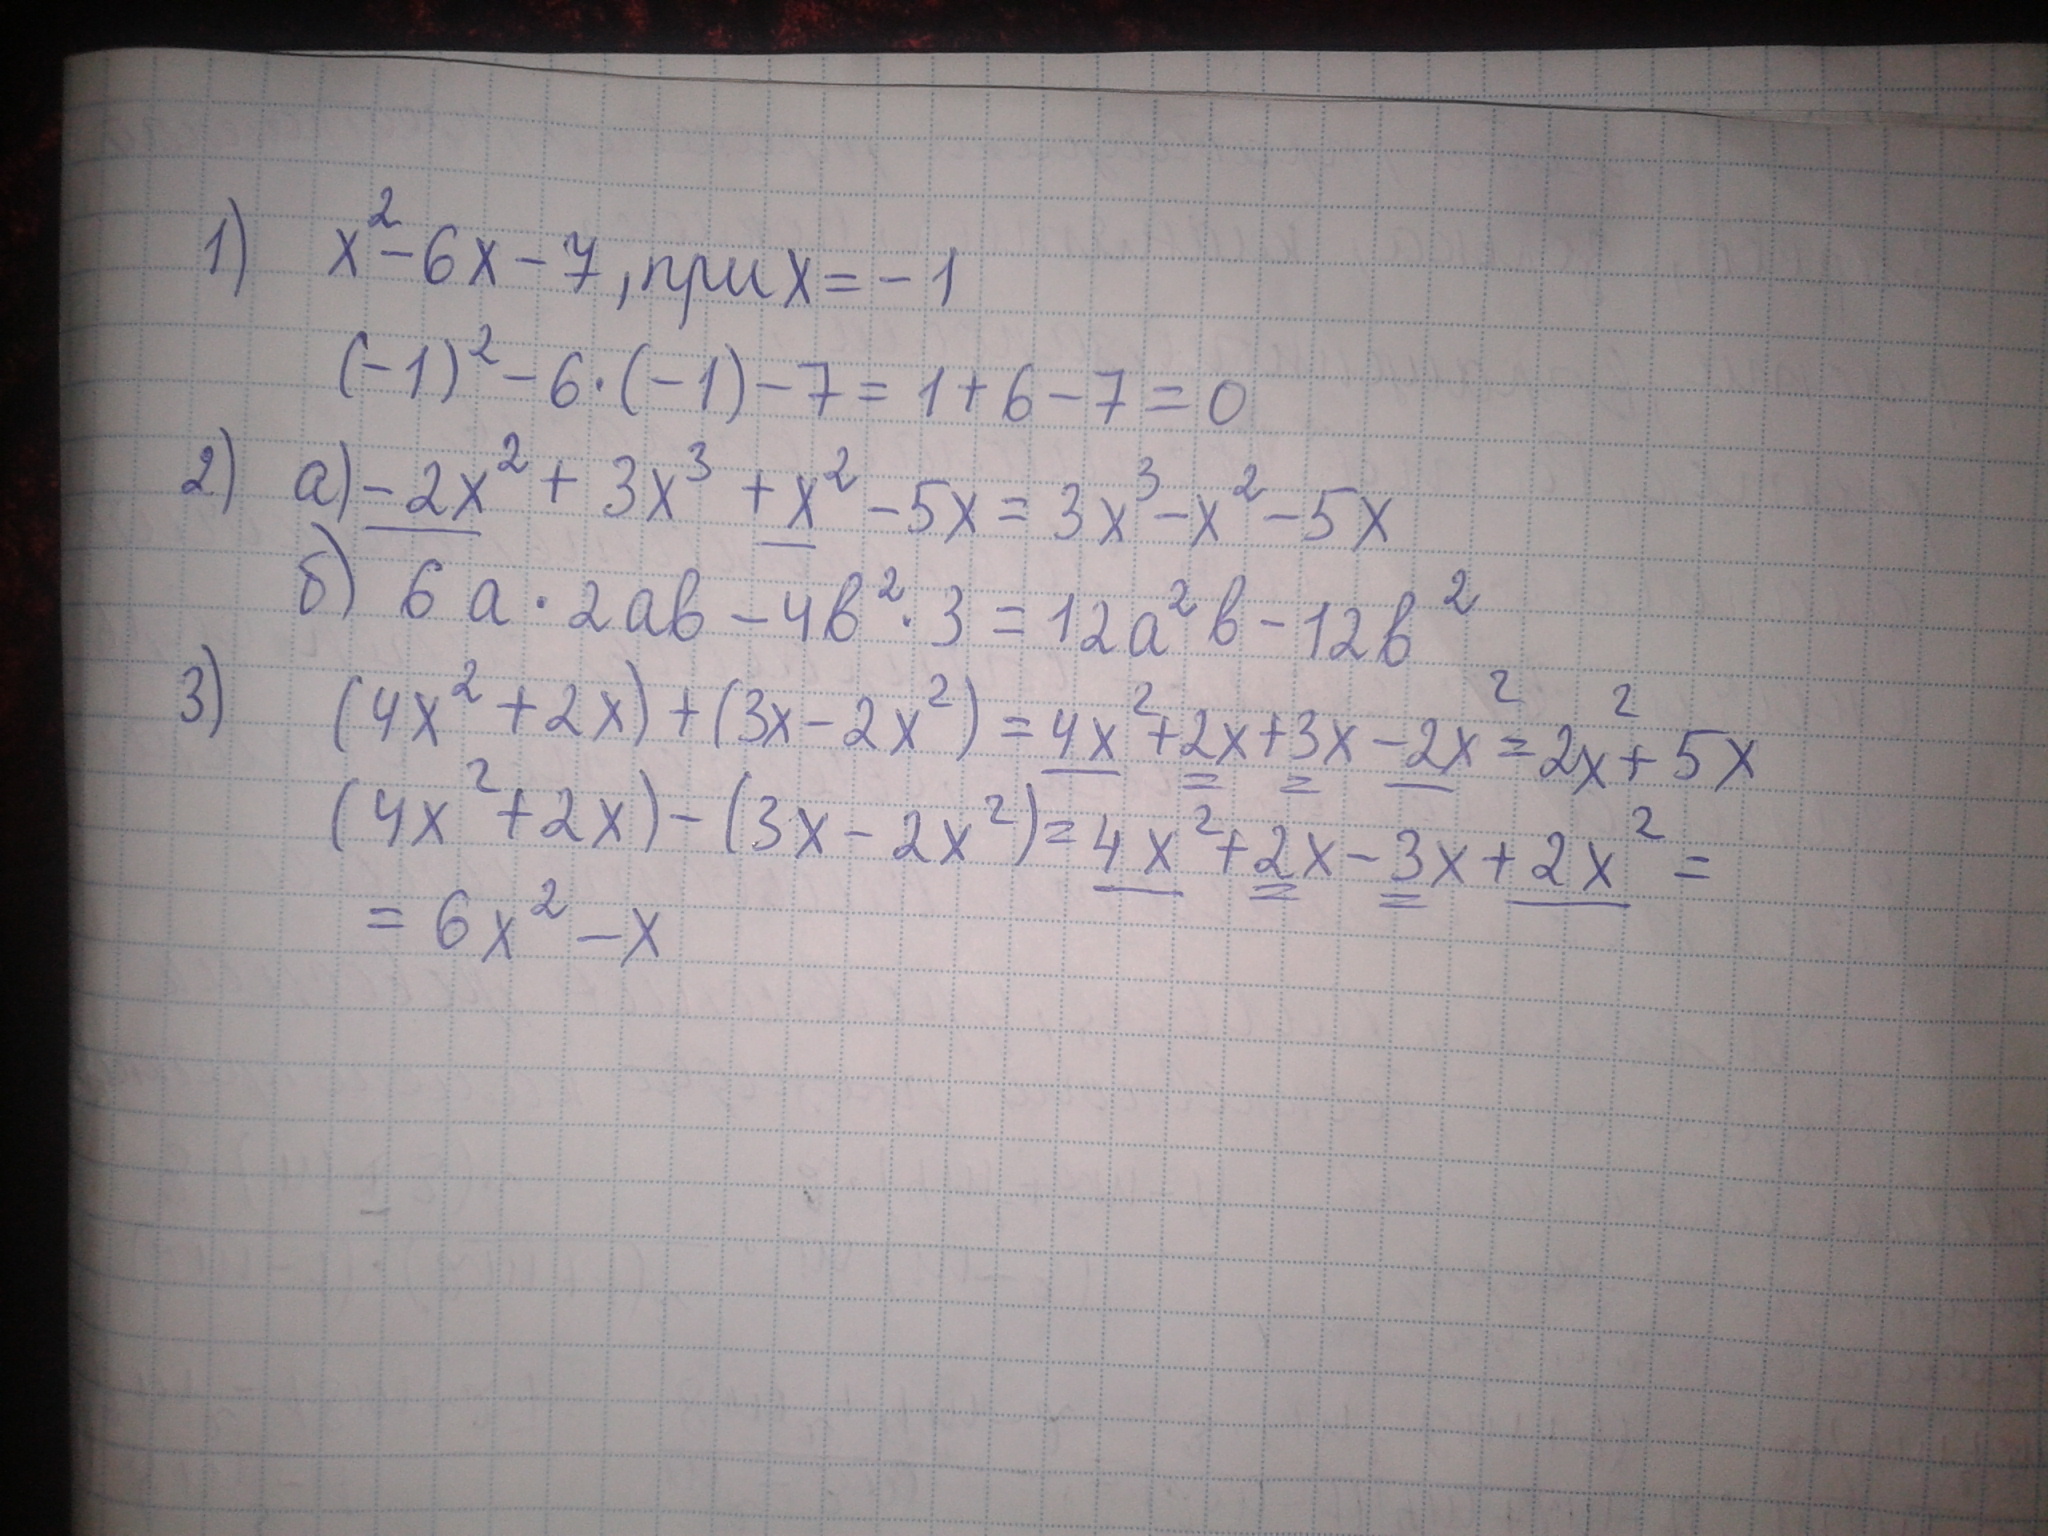 1) x² - 6x - 7, при x = -1
(-1)² - 6·(-1) - 7 = 1 + 6 - 7 = 0
2) а) -2x² + 3x³ + x² - 5x = 3x³ - x² - 5x
б) 6a · 2ab - 4b² · 3 = 12a²b - 12b²
3) (4x² + 2x) + (3x - 2x²) = 4x² + 2x + 3x - 2x² = 2x² + 5x
(4x² + 2x) - (3x - 2x²) = 4x² + 2x - 3x + 2x² =
= 6x² - x